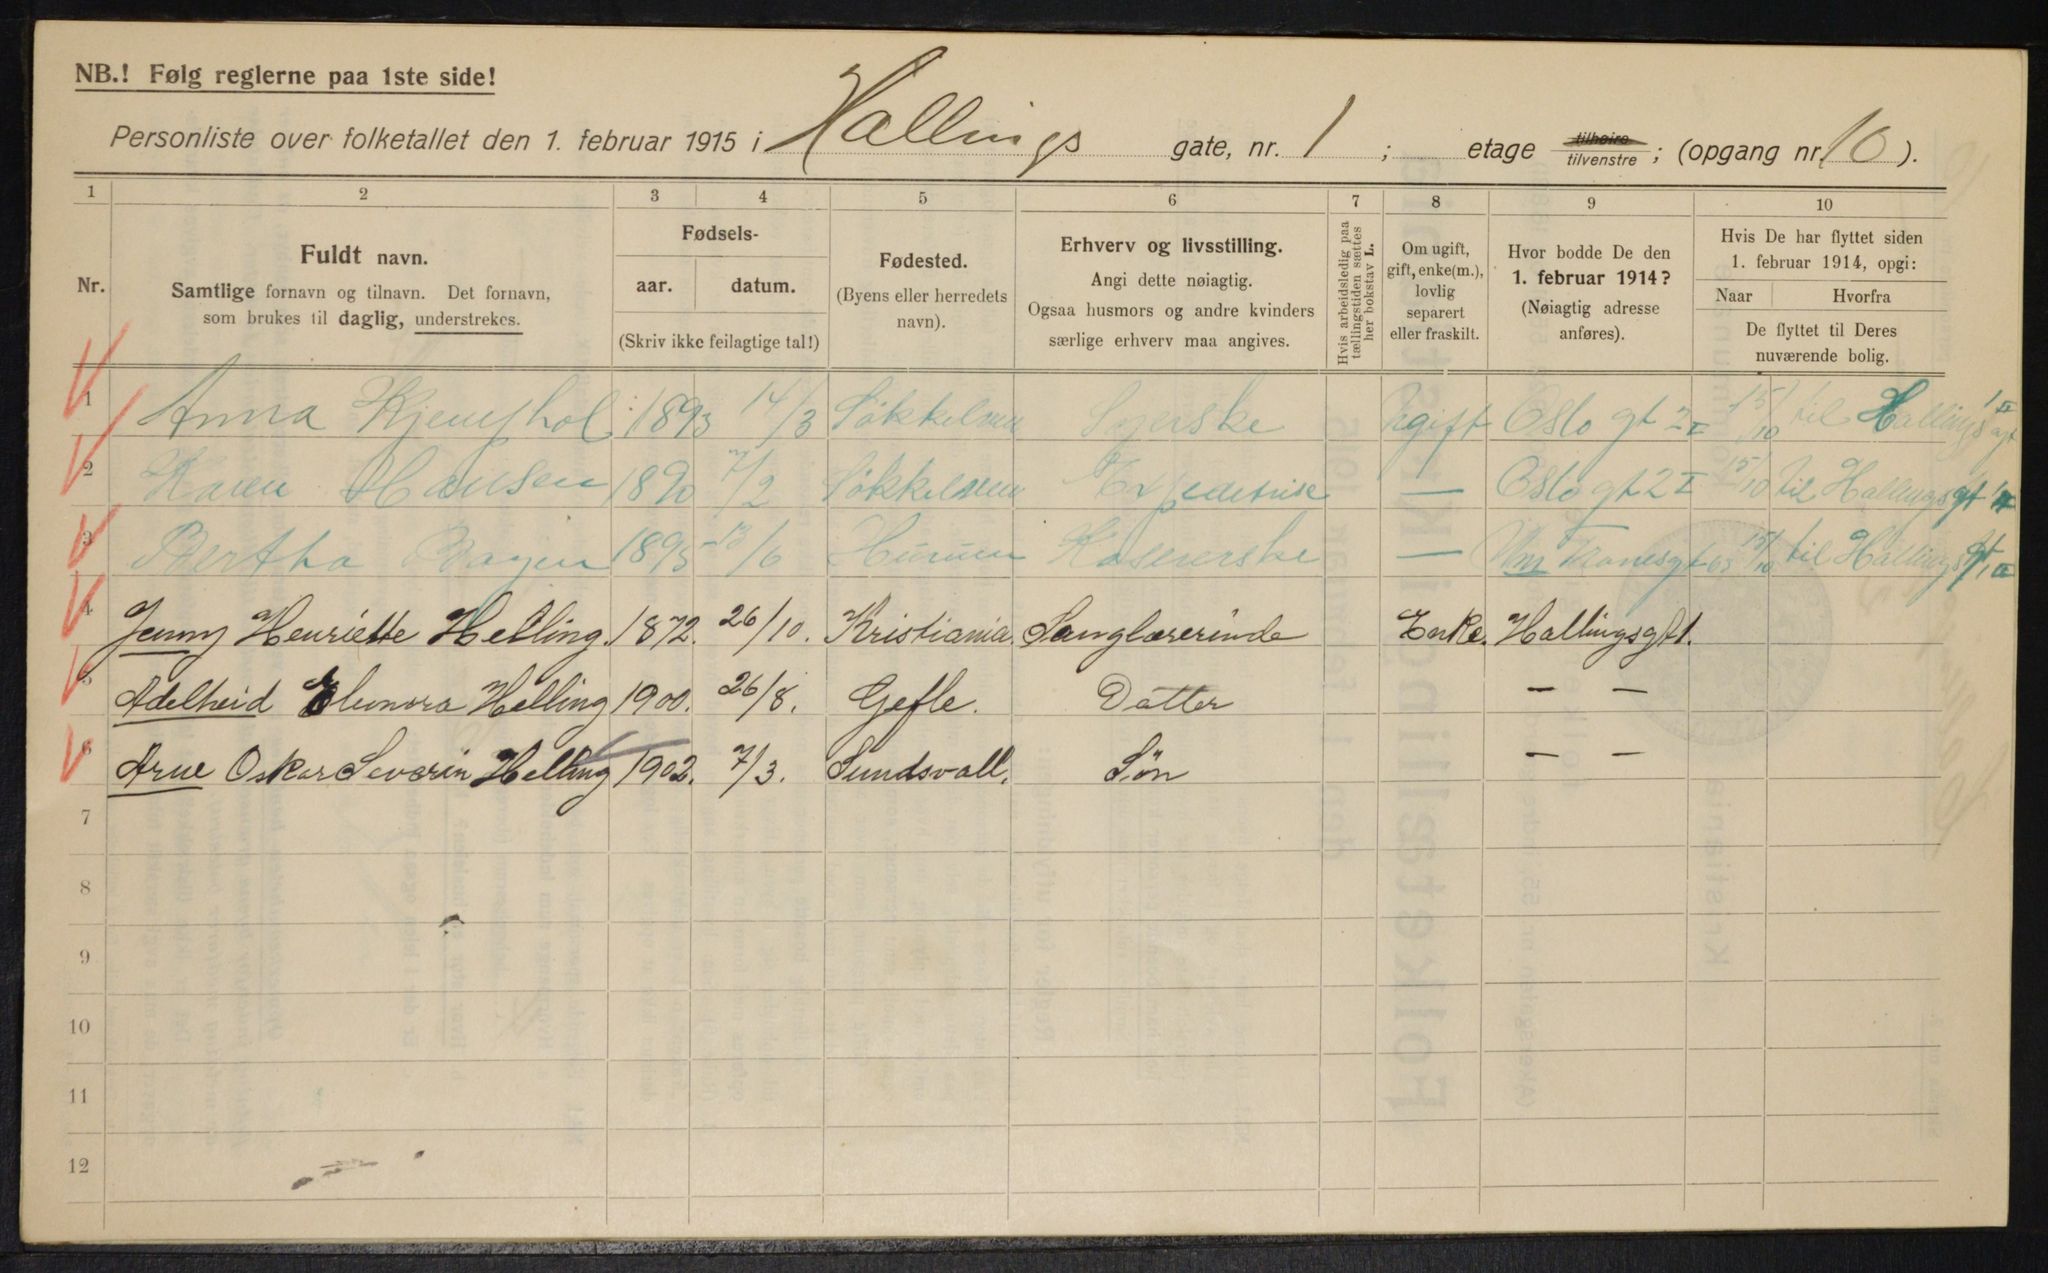 NB.! Følg reglerne paa 1ste side!
Personliste over folketallet den 1. februar 1915 i Hallings gate, nr. 1 ; etage tilhøire tilvenstre ; (opgang nr. 10 ).
1 2 3 4 5 6 7 8 9 10
Nr.
Fuldt navn.
Samtlige fornavn og tilnavn. Det fornavn,
som brukes til daglig, understrekes.
Fødsels-
aar. datum.
(Skriv ikke feilagtige tal!)
Fødested.
(Byens eller herredets
navn).
Erhverv og livsstilling.
Angi dette nøiagtig.
Ogsaa husmors og andre kvinders
særlige erhverv maa angives.
Hvis arbeidsledig paa
tællingstiden sættes
her bokstav L.
Om ugift,
gift, enke(m.),
lovlig
separert
eller fraskilt.
Hvor bodde De den
1. februar 1914?
(Nøiagtig adresse
anføres).
Hvis De har flyttet siden
1. februar 1914, opgi:
Naar Hvorfra
De flyttet til Deres
nuværende bolig.
1 Anna 1893 14/3 Ugift Oslo gt 2 I 15/10 til Hallings gt 1 II
2 Karen Hansen 1890 7/2 — Oslo gt 2 I 15/10 til Hallings gt 1 II
3 Bertha 1895 13/6 Hurum Kasererske — 15/10 til Hallings gt 1 II
4 Jenny Henriette Helling. 1872. 26/10. Kristiania. Sanglærerinde Enke. Hallingsgt 1.
5 Adelheid Elenora Helling 1900. 26/8. Gefle. Datter — —
6 Arne Oskar Severin Helling 1902. 7/3. Sundsvall. Søn — —
7
8
9
10
11
12